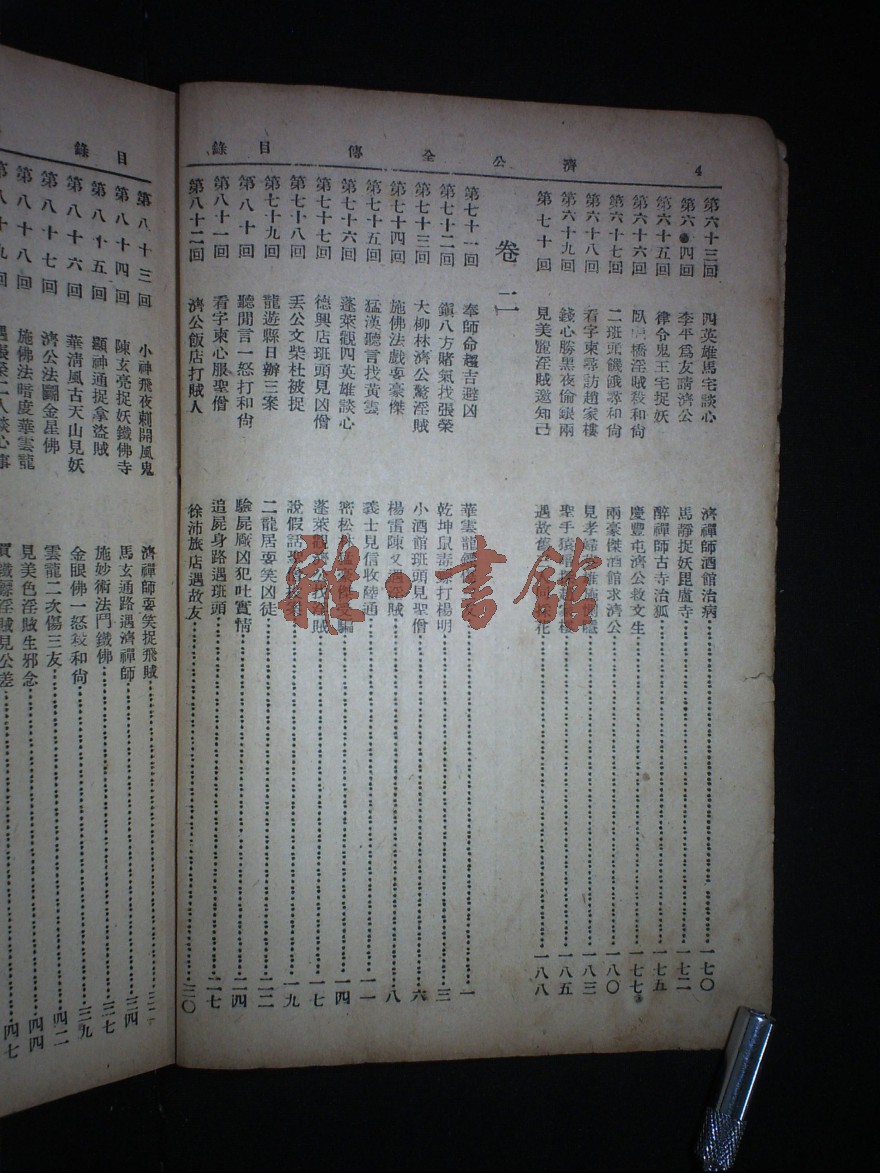 4　濟公全傳　目錄
第六十三回　四英雄馬宅談心　濟禪師酒館治病　一七〇
第六十四回　李平爲友請濟公　馬靜捉妖毘盧寺　一七二
第六十五回　律令鬼王宅捉妖　醉禪師古寺治狐　一七五
第六十六回　臥虎橋淫賊殺和尙　慶豐屯濟公救文生　一七七
第六十七回　二班頭饑餓尋和尙　兩豪傑酒館求濟公　一八〇
第六十八回　看字柬尋訪趙家樓　見孝　一八三
第六十九回　錢心勝黑夜偷銀兩　聖手　一八五
第七十回　見美麗淫賊邀知己　遇故　花　一八八
卷二
第七十一回　奉師命趨吉避凶　華雲龍　友　一
第七十二回　鎭八方賭氣找張榮　乾坤鼠毒害打楊明　三
第七十三回　大柳林濟公驚淫賊　小酒館班頭見聖僧　六
第七十四回　施佛法戲耍豪傑　楊雷陳又遇淫賊　八
第七十五回　猛漢聽言找黃雲　義士見信收陸通　一一
第七十六回　蓬萊觀四英雄談心　密松林　騙　一四
第七十七回　德興店班頭見凶僧　蓬萊觀濟公找淫賊　一七
第七十八回　丟公文柴杜被捉　說假話聖僧　一九
第七十九回　龍遊縣日辦三案　二龍居耍笑凶徒　二二
第八十回　聽聞言一怒打和尙　驗屍廠凶犯吐實情　二四
第八十一回　看字柬心服聖僧　追屍身路遇班頭　二七
第八十二回　濟公飯店打賊人　徐沛旅店遇故友　三〇
目錄
第八十三回　小神飛夜刺開風鬼　濟禪師耍笑捉飛賊　三二
第八十四回　陳玄亮捉妖鐵佛寺　馬玄通路遇濟禪師　三四
第八十五回　顯神通捉拿盜賊　施妙術法鬥鐵佛　三七
第八十六回　華淸風古天山見妖　金眼佛一怒殺和尙　三九
第八十七回　濟公法鬭金星佛　雲龍二次傷三友　四二
第八十八回　施佛法暗度華雲龍　見美色淫賊生邪念　四四
第八十九回　遇張榮二人談心事　買鐵鏢淫賊見公差　四七
雜·書館